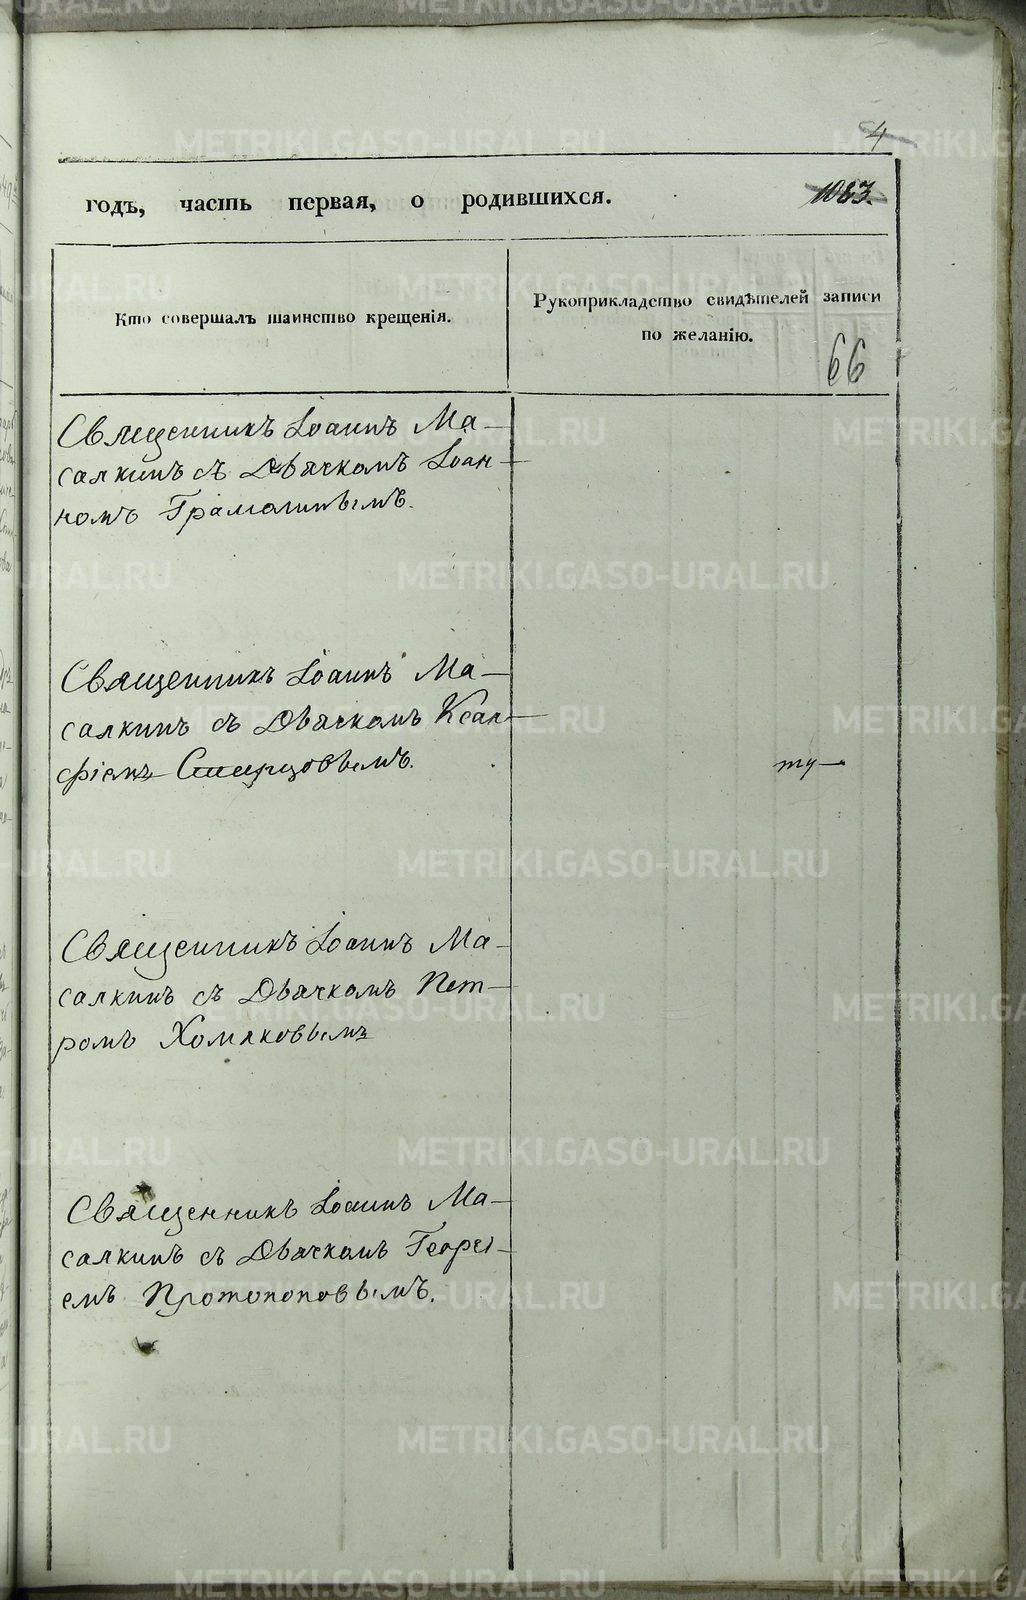 4
годъ, часть первая, о родившихся.
1083.
Кто совершалъ таинство крещенія.
Рукоприкладство свидѣтелей записи
по желанію.
66
Священникъ Іоаннъ Ма-
салкинъ съ Дьячкомъ Іоан-
номъ Грамолинымъ.
Священникъ Іоаннъ Ма-
салкинъ съ Дьячкомъ Ксан-
фіемъ Спирцовымъ.
Священникъ Іоаннъ Ма-
салкинъ съ Дьячкомъ Пет-
ромъ Хомяковымъ
Священникъ Іоаннъ Ма-
салкинъ съ Дьячкомъ Георгі-
емъ Протопоповымъ.
METRIKI.GASO-URAL.RU